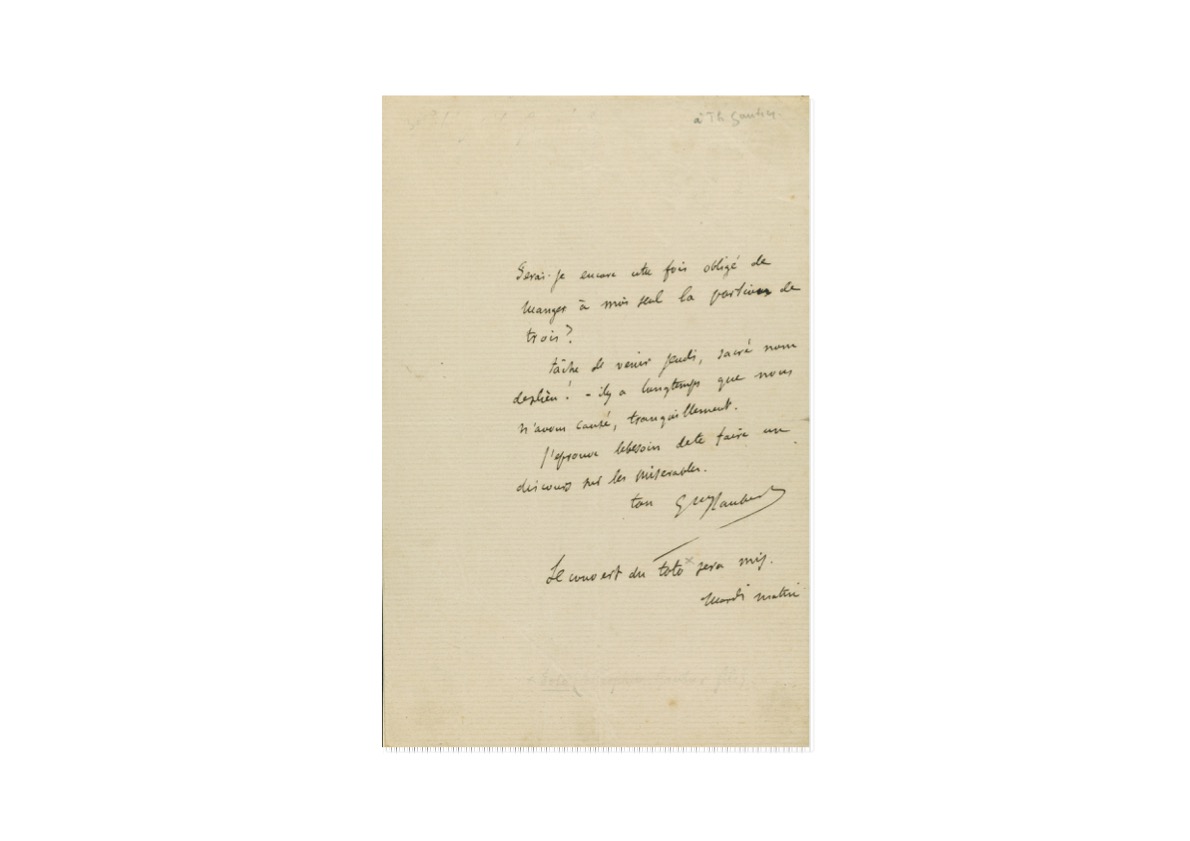 à Th Gautier.
Serai-je encore une fois obligé de
manger à moi seul la portion de
trois?
tâche de venir jeudi, sacré nom
desdieu! - il y a longtemps que nous
n'avons causé, tranquillement.
J'éprouve le besoin de te faire un
discours sur les Miserables.
ton Gve Flaubert
Le couvert du Toto x sera mis.
Mardi matin